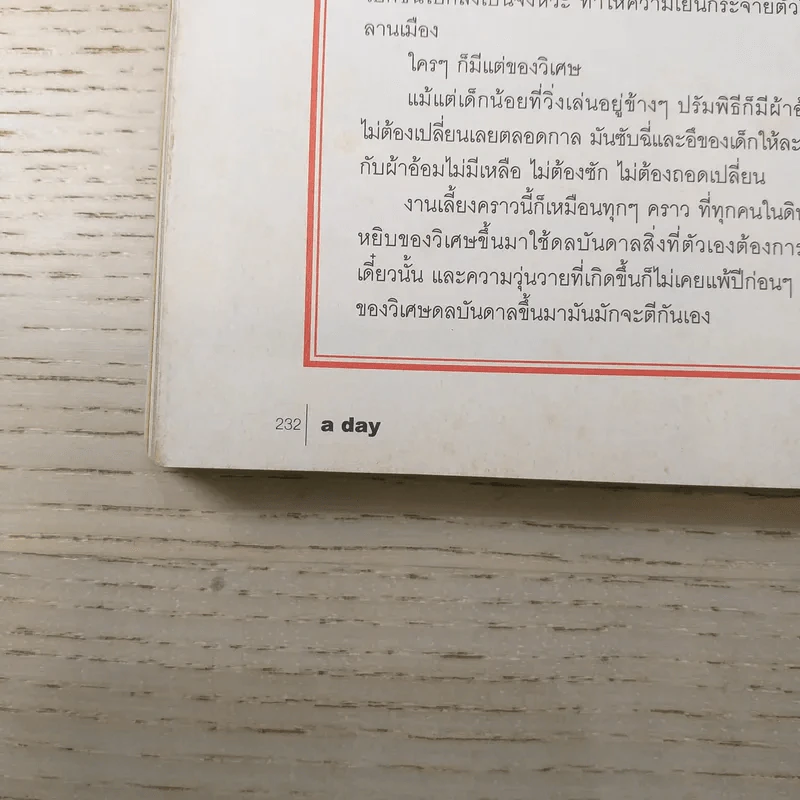 ทำให้ความเย็นกระจายตัว
ลานเมือง
ใครๆ ก็มีแต่ของวิเศษ
แม้แต่เด็กน้อยที่วิ่งเล่นอยู่ข้างๆ ปรัมพิธีก็มีผ้า
ไม่ต้องเปลี่ยนเลยตลอดกาล มันซับฉี่และอึของเด็กให้
กับผ้าอ้อมไม่มีเหลือ ไม่ต้องซัก ไม่ต้องถอดเปลี่ยน
งานเลี้ยงคราวนี้ก็เหมือนทุกๆ คราว ที่ทุกคนใน
หยิบของวิเศษขึ้นมาใช้ดลบันดาลสิ่งที่ตัวเองต้องการ
เดี๋ยวนั้น และความวุ่นวายที่เกิดขึ้นก็ไม่เคยแพ้ปีก่อนๆ
ของวิเศษดลบันดาลขึ้นมามันมักจะตีกันเอง
232 a day